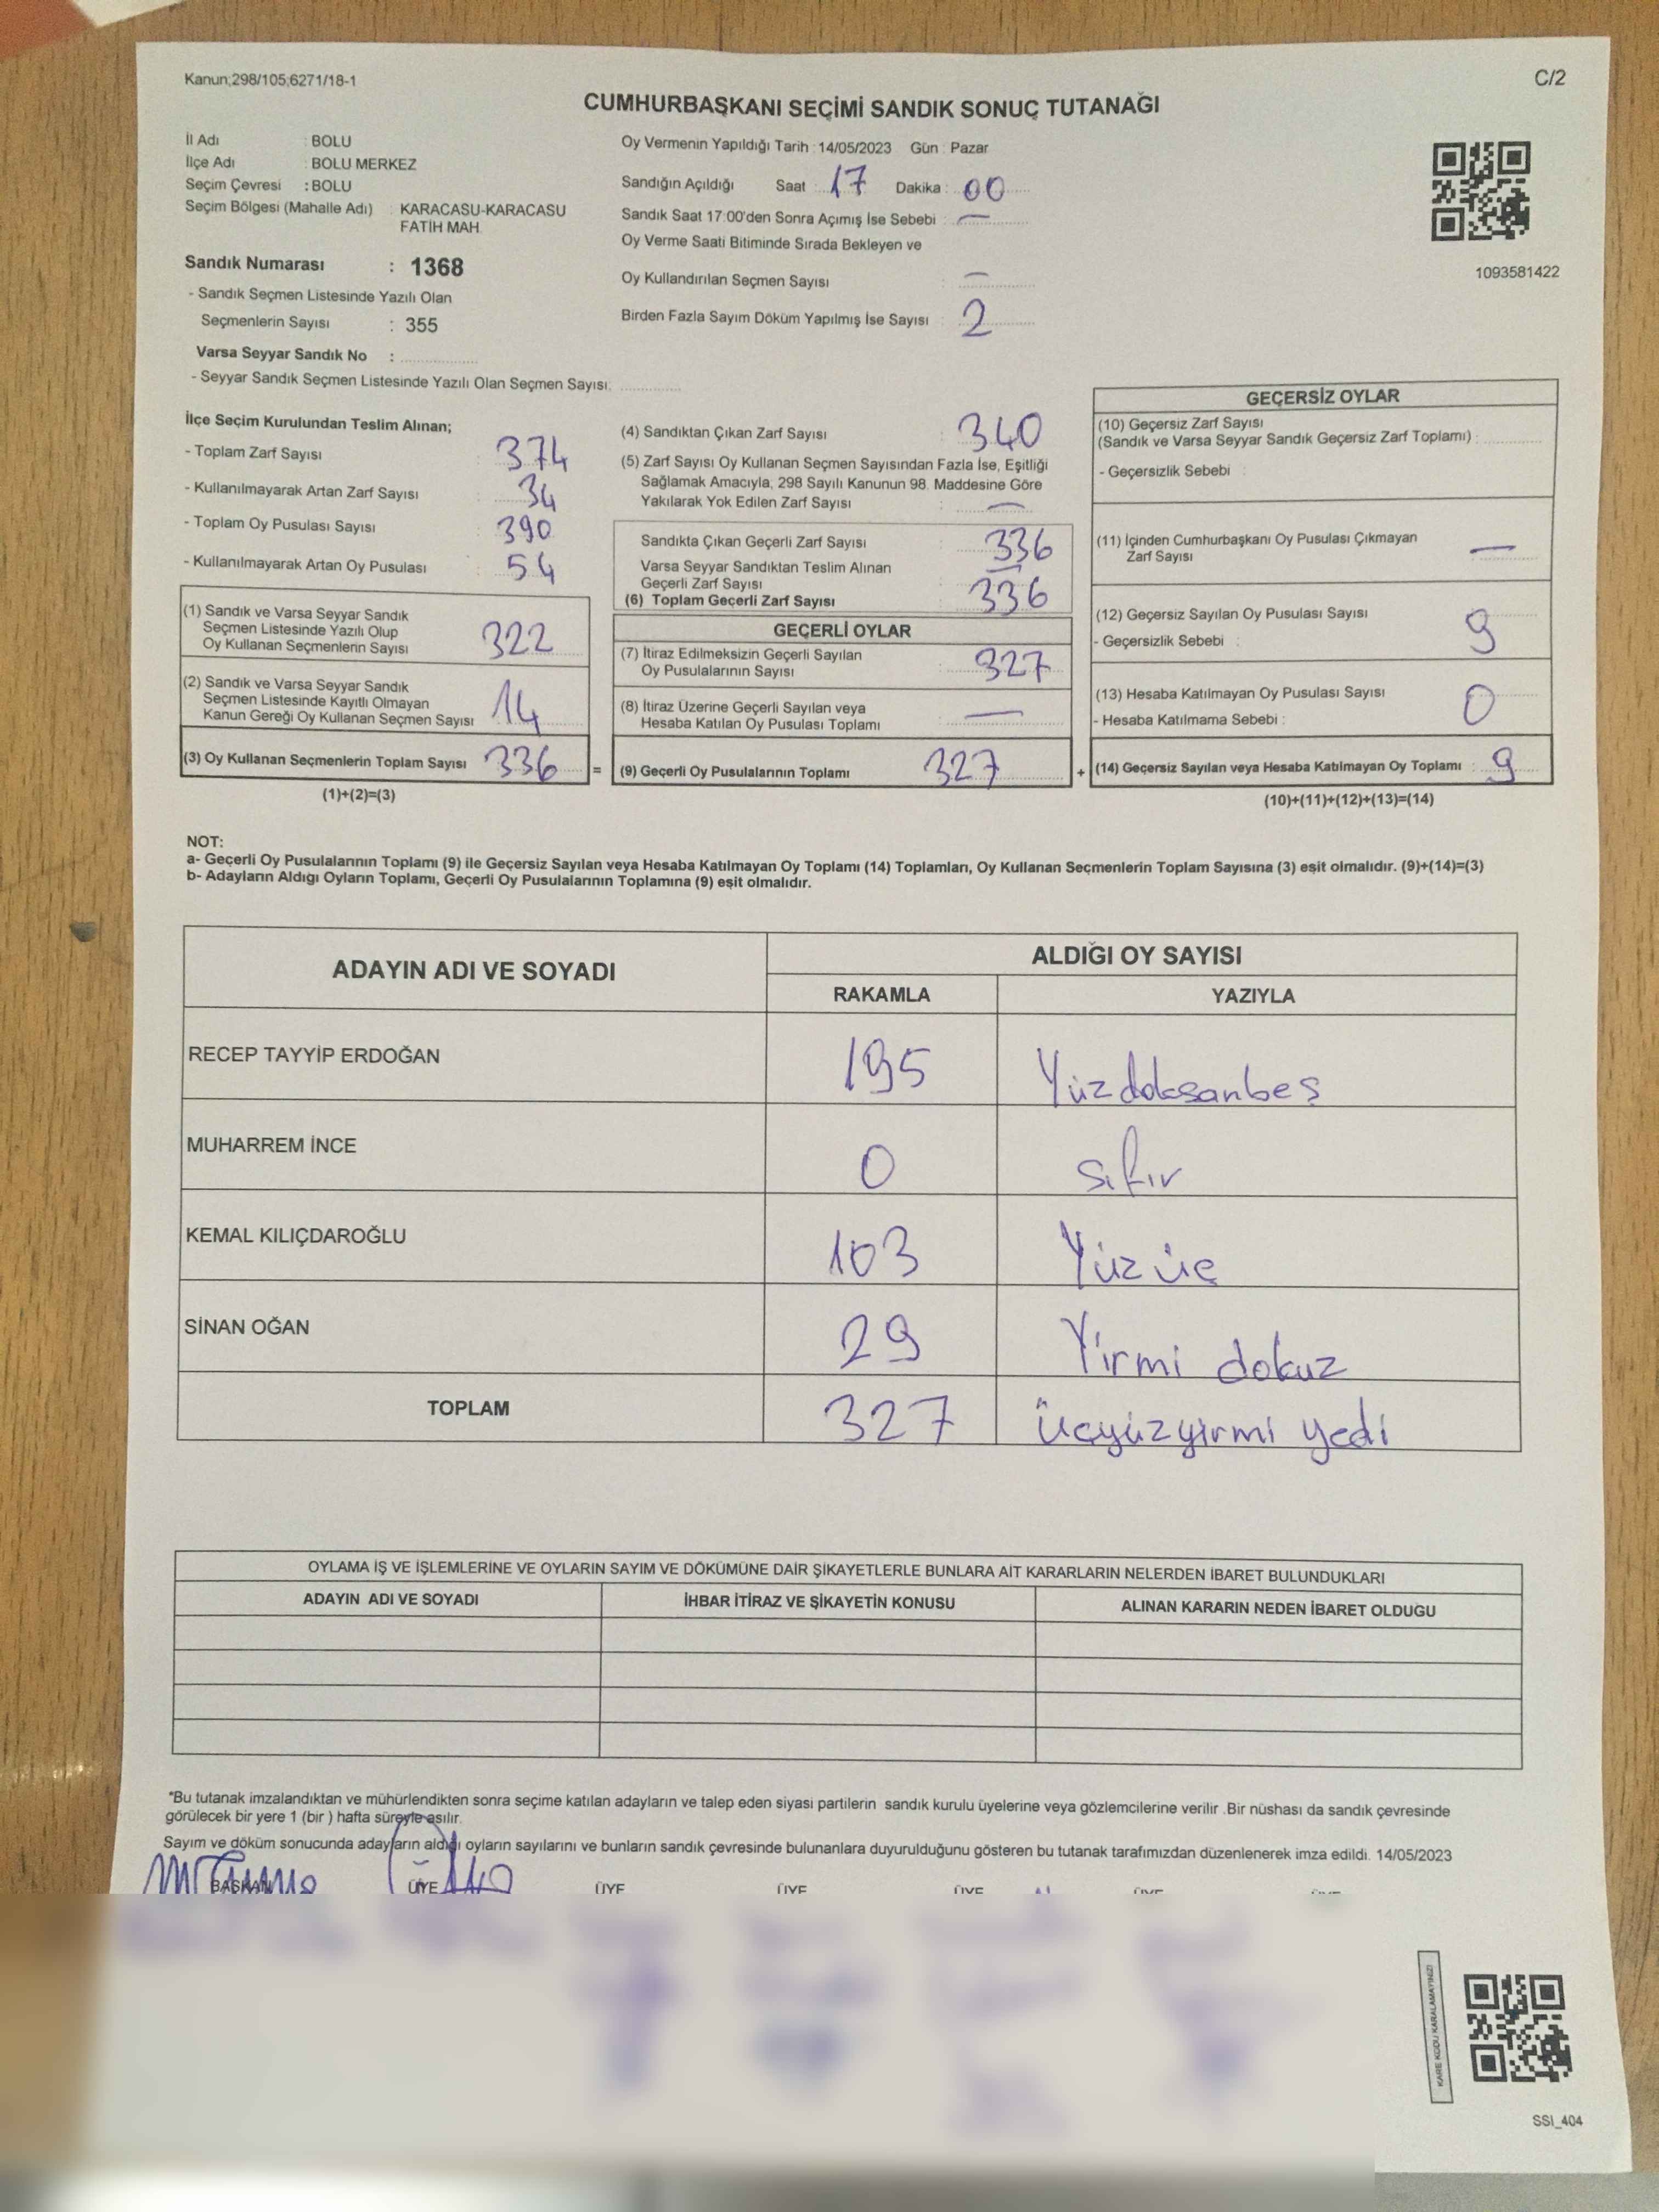 Kanun;298/105;6271/18-1
C/2
CUMHURBAŞKANI SEÇİMİ SANDIK SONUÇ TUTANAĞI
İl Adı : BOLU
İlçe Adı : BOLU MERKEZ
Seçim Çevresi : BOLU
Seçim Bölgesi (Mahalle Adı) : KARACASU-KARACASU
FATİH MAH.
Sandık Numarası : 1368
- Sandık Seçmen Listesinde Yazılı Olan
Seçmenlerin Sayısı : 355
Varsa Seyyar Sandık No :
- Seyyar Sandık Seçmen Listesinde Yazılı Olan Seçmen Sayısı:
Oy Vermenin Yapıldığı Tarih : 14/05/2023 Gün : Pazar
Sandığın Açıldığı Saat : 17 Dakika : 00
Sandık Saat 17:00'den Sonra Açımış İse Sebebi : —
Oy Verme Saati Bitiminde Sırada Bekleyen ve
Oy Kullandırılan Seçmen Sayısı : —
Birden Fazla Sayım Döküm Yapılmış İse Sayısı : 2
1093581422
İlçe Seçim Kurulundan Teslim Alınan;
- Toplam Zarf Sayısı : 374
- Kullanılmayarak Artan Zarf Sayısı : 34
- Toplam Oy Pusulası Sayısı : 390
- Kullanılmayarak Artan Oy Pusulası : 54
(1) Sandık ve Varsa Seyyar Sandık
Seçmen Listesinde Yazılı Olup
Oy Kullanan Seçmenlerin Sayısı 322
(2) Sandık ve Varsa Seyyar Sandık
Seçmen Listesinde Kayıtlı Olmayan
Kanun Gereği Oy Kullanan Seçmen Sayısı 14
(3) Oy Kullanan Seçmenlerin Toplam Sayısı 336
(1)+(2)=(3)
(4) Sandıktan Çıkan Zarf Sayısı : 340
(5) Zarf Sayısı Oy Kullanan Seçmen Sayısından Fazla İse, Eşitliği
Sağlamak Amacıyla, 298 Sayılı Kanunun 98. Maddesine Göre
Yakılarak Yok Edilen Zarf Sayısı : —
Sandıkta Çıkan Geçerli Zarf Sayısı : 336
Varsa Seyyar Sandıktan Teslim Alınan
Geçerli Zarf Sayısı : —
(6) Toplam Geçerli Zarf Sayısı : 336
GEÇERLİ OYLAR
(7) İtiraz Edilmeksizin Geçerli Sayılan
Oy Pusulalarının Sayısı : 327
(8) İtiraz Üzerine Geçerli Sayılan veya
Hesaba Katılan Oy Pusulası Toplamı : —
= (9) Geçerli Oy Pusulalarının Toplamı 327
GEÇERSİZ OYLAR
(10) Geçersiz Zarf Sayısı
(Sandık ve Varsa Seyyar Sandık Geçersiz Zarf Toplamı) :
- Geçersizlik Sebebi :
(11) İçinden Cumhurbaşkanı Oy Pusulası Çıkmayan
Zarf Sayısı —
(12) Geçersiz Sayılan Oy Pusulası Sayısı 9
- Geçersizlik Sebebi :
(13) Hesaba Katılmayan Oy Pusulası Sayısı 0
- Hesaba Katılmama Sebebi :
+ (14) Geçersiz Sayılan veya Hesaba Katılmayan Oy Toplamı : 9
(10)+(11)+(12)+(13)=(14)
NOT:
a- Geçerli Oy Pusulalarının Toplamı (9) ile Geçersiz Sayılan veya Hesaba Katılmayan Oy Toplamı (14) Toplamları, Oy Kullanan Seçmenlerin Toplam Sayısına (3) eşit olmalıdır. (9)+(14)=(3)
b- Adayların Aldığı Oyların Toplamı, Geçerli Oy Pusulalarının Toplamına (9) eşit olmalıdır.
ADAYIN ADI VE SOYADI
ALDIĞI OY SAYISI
RAKAMLA YAZIYLA
RECEP TAYYİP ERDOĞAN 195 Yüzdoksanbeş
MUHARREM İNCE 0 sıfır
KEMAL KILIÇDAROĞLU 103 Yüz üç
SİNAN OĞAN 29 Yirmi dokuz
TOPLAM 327 Üçyüzyirmi yedi
OYLAMA İŞ VE İŞLEMLERİNE VE OYLARIN SAYIM VE DÖKÜMÜNE DAİR ŞİKAYETLERLE BUNLARA AİT KARARLARIN NELERDEN İBARET BULUNDUKLARI
ADAYIN ADI VE SOYADI İHBAR İTİRAZ VE ŞİKAYETİN KONUSU ALINAN KARARIN NEDEN İBARET OLDUĞU
*Bu tutanak imzalandıktan ve mühürlendikten sonra seçime katılan adayların ve talep eden siyasi partilerin sandık kurulu üyelerine veya gözlemcilerine verilir .Bir nüshası da sandık çevresinde
görülecek bir yere 1 (bir ) hafta süreyle asılır.
Sayım ve döküm sonucunda adayların aldığı oyların sayılarını ve bunların sandık çevresinde bulunanlara duyurulduğunu gösteren bu tutanak tarafımızdan düzenlenerek imza edildi. 14/05/2023
BAŞKAN ÜYE ÜYE ÜYE ÜYE ÜYE
KARE KODU KARALAMAYINIZ!
SSI_404